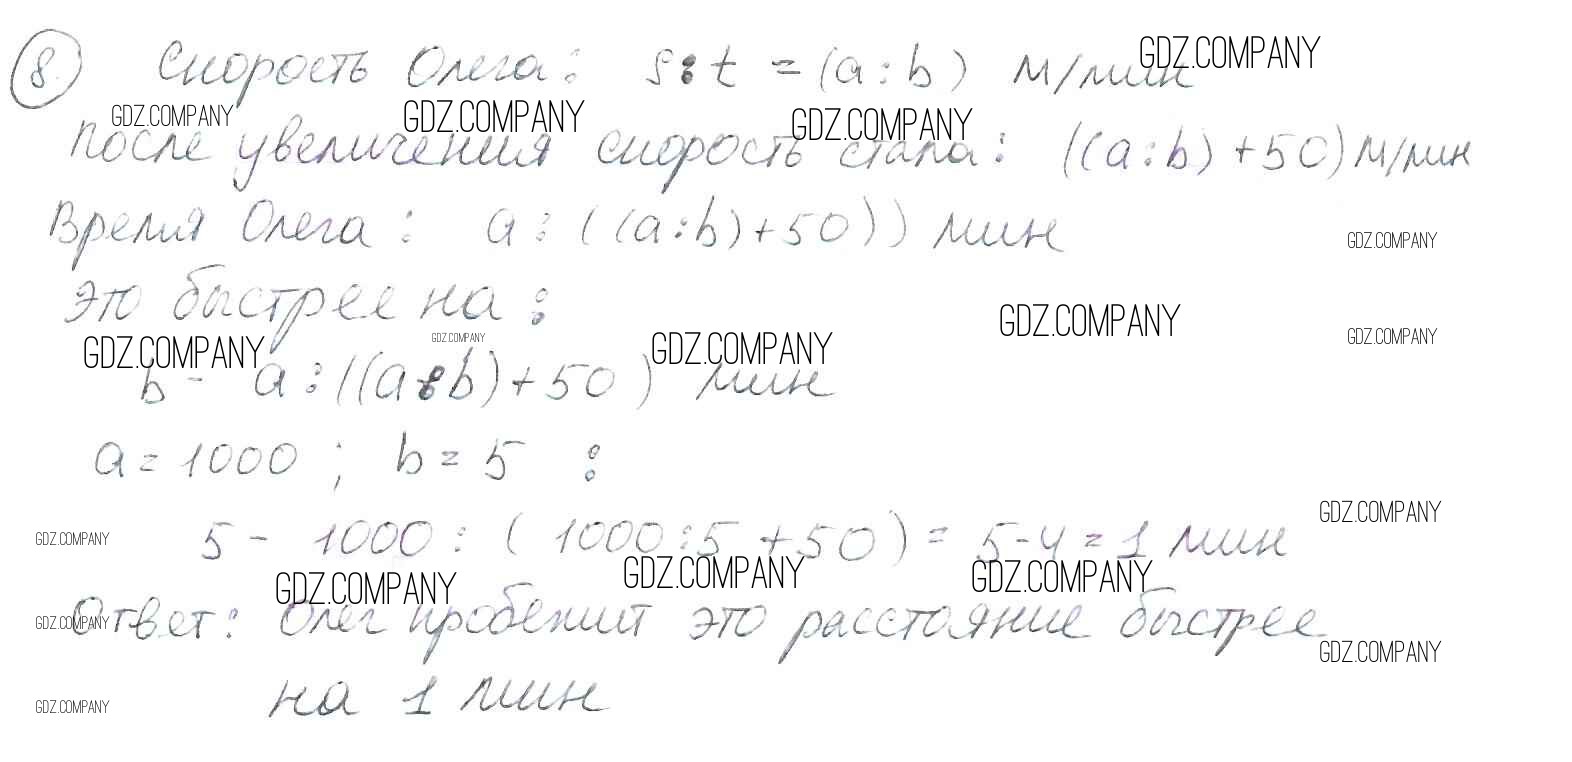 8. Скорость Олега: s:t = (a:b) м/мин GDZ.COMPANY
GDZ.COMPANY GDZ.COMPANY GDZ.COMPANY
после увеличения скорость стала: ((a:b)+50) м/мин
Время Олега: a:((a:b)+50)) мин
GDZ.COMPANY
это быстрее на:
GDZ.COMPANY GDZ.COMPANY GDZ.COMPANY GDZ.COMPANY GDZ.COMPANY
b - a:((a:b)+50) мин
a = 1000 ; b = 5 :
GDZ.COMPANY
5 - 1000 : (1000:5 +50) = 5-4 = 1 мин
GDZ.COMPANY GDZ.COMPANY GDZ.COMPANY GDZ.COMPANY
Ответ: Олег пробежит это расстояние быстрее
GDZ.COMPANY GDZ.COMPANY
на 1 мин
GDZ.COMPANY